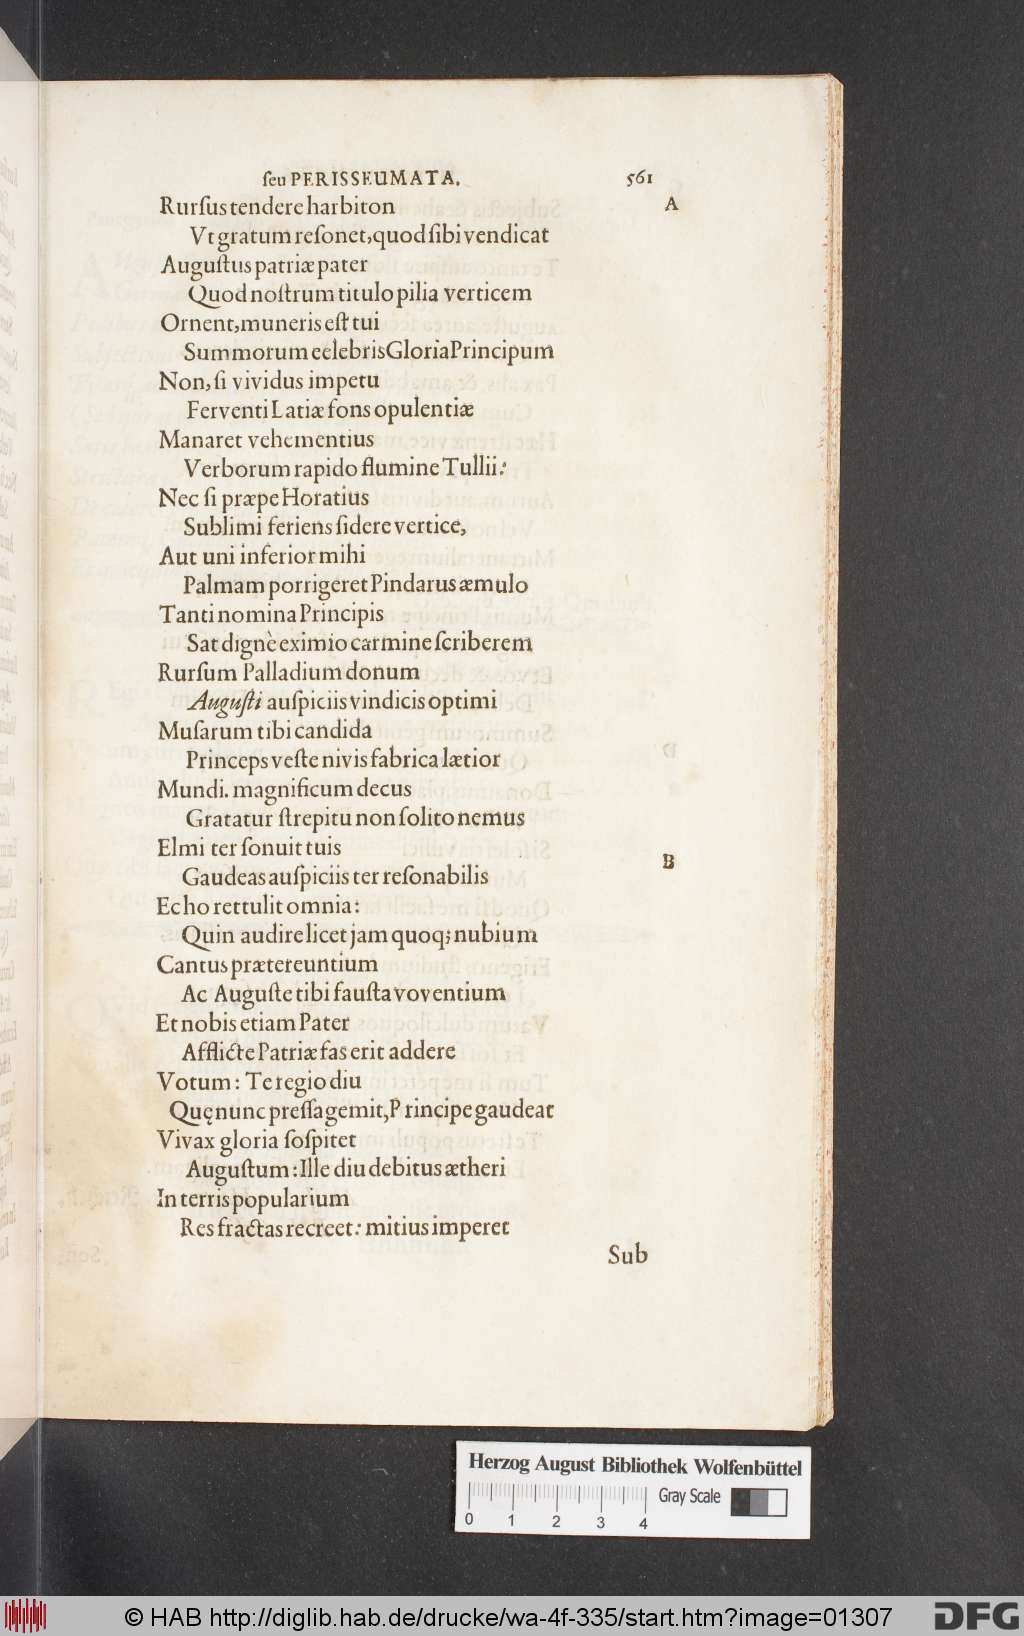 ſeu PERISSEUMATA. 561
Rurſus tendere harbiton A
Vt gratum reſonet, quod ſibi vendicat
Auguſtus patriæ pater
Quod noſtrum titulo pilia verticem
Ornent, muneris eſt tui
Summorum celebris Gloria Principum
Non, ſi vividus impetu
Ferventi Latiæ fons opulentiæ
Manaret vehementius
Verborum rapido flumine Tullii:
Nec ſi præpe Horatius
Sublimi feriens ſidere vertice,
Aut uni inferior mihi
Palmam porrigeret Pindarus æmulo
Tanti nomina Principis
Sat dignè eximio carmine ſcriberem
Rurſum Palladium donum
Auguſti auſpiciis vindicis optimi
Muſarum tibi candida
Princeps veſte nivis fabrica lætior
Mundi. magnificum decus
Gratatur ſtrepitu non ſolito nemus
Elmi ter ſonuit tuis
B
Gaudeas auſpiciis ter reſonabilis
Echo rettulit omnia:
Quin audire licet jam quoq; nubium
Cantus prætereuntium
Ac Auguſte tibi fauſta voventium
Et nobis etiam Pater
Afflictę Patriæ fas erit addere
Votum: Te regio diu
Quę nunc preſſa gemit, Principe gaudeat
Vivax gloria ſoſpitet
Auguſtum: Ille diu debitus ætheri
In terris popularium
Res fractas recreet: mitius imperet
Sub
Herzog August Bibliothek Wolfenbüttel
Gray Scale
0 1 2 3 4
© HAB http://diglib.hab.de/drucke/wa-4f-335/start.htm?image=01307
DFG